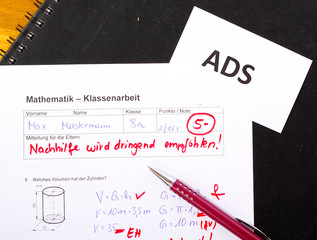 ADS
Mathematik – Klassenarbeit
Vorname Name Klasse Punkte / Note
Max Mustermann 8a 5-
Mitteilung für die Eltern:
Nachhilfe wird dringend empfohlen!
1 Welches Volumen hat der Zylinder?
V = G · h
V = 10m · 3,5m
V = 35 EH
G = 10m